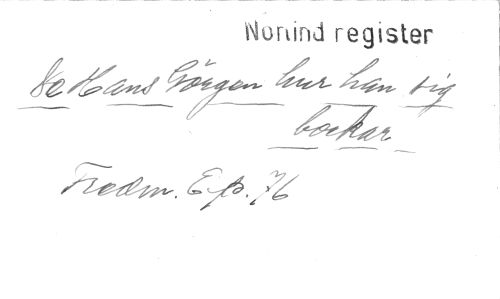 Nonind register
Se Hans Görgen hur han sig
bockar
Fredm. Ep. 76